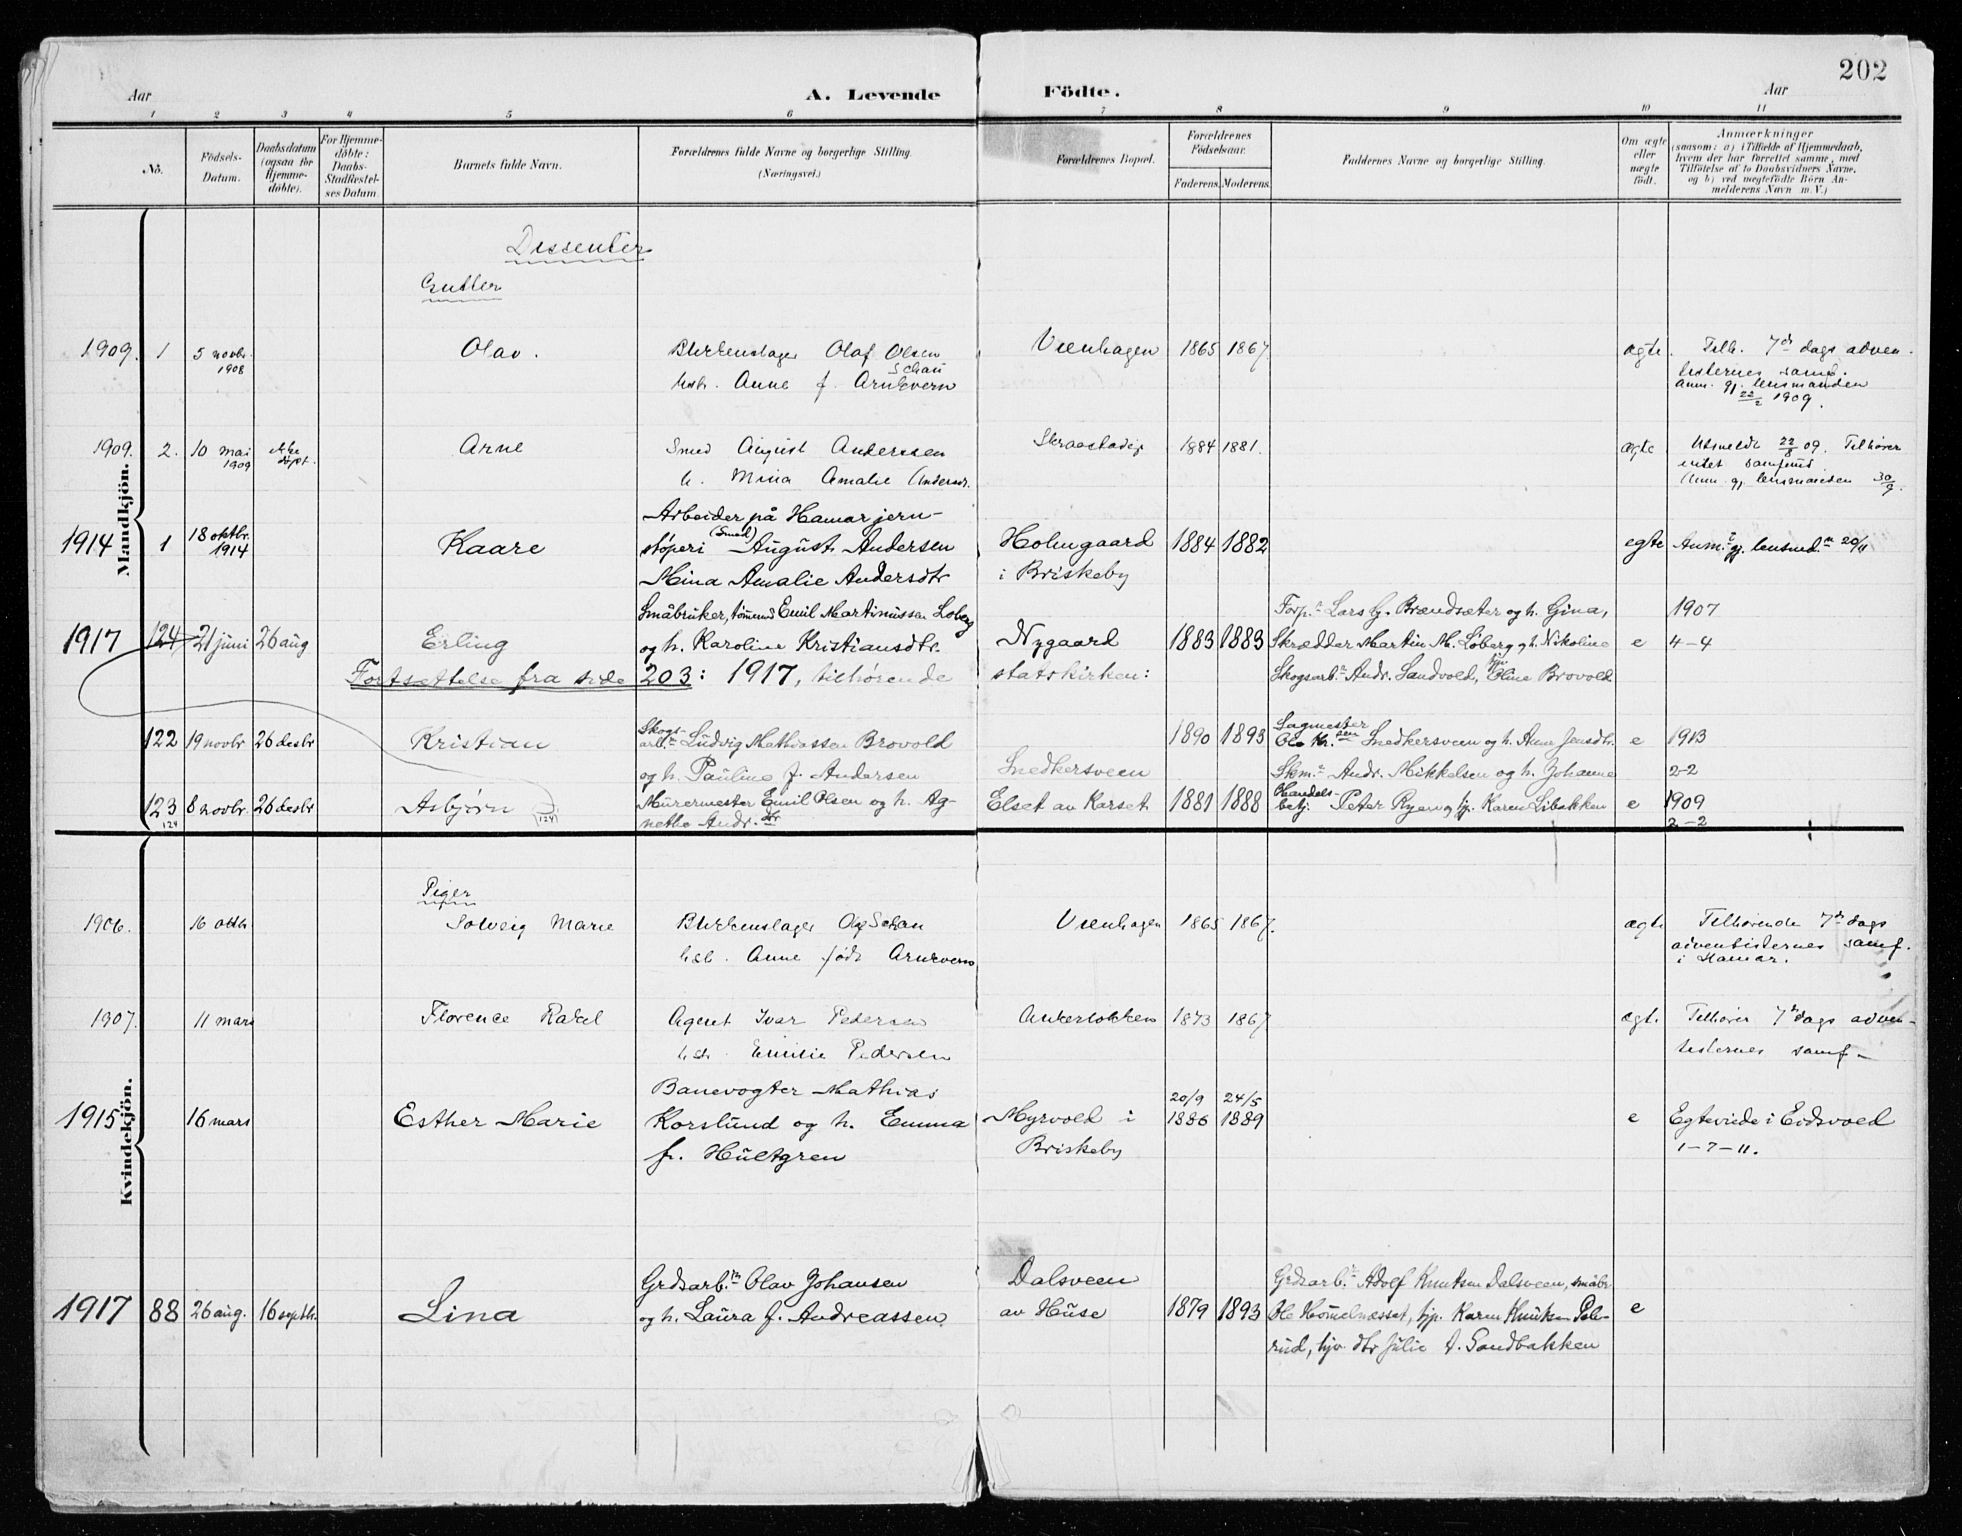 202
Aar
A. Levende Födte.
Aar
1 2 3 4 5 6 7 8 9 10 11
No.
Födsels-Datum.
Daabsdatum (ogsaa for Hjemme-döbte).
For Hjemme-döbte: Daabs-Stadfæstel-ses Datum.
Barnets fulde Navn.
Forældrenes fulde Navne og borgerlige Stilling.
(Næringsvei.)
Forældrenes Bopæl.
Forældrenes Födselsaar.
Faderens. Moderens.
Faddernes Navne og borgerlige Stilling.
Om ægte eller uægte födt.
Anmærkninger
(saasom: a) i Tilfælde af Hjemmedaab,
hvem der har forrettet samme, med
Tilföielse af to Daabsvidners Navne.
og b) ved uægtefödte Börn An-
melderens Navn m. V.)
Mandkjön.
Dissenter
Gutter
1909. 1 5 novbr. 1908 Olav. Blikkenslager Olaf Olsen Schau
hstr. Anne f. Arnkværn
Vienhagen 1865 1867 ægte. Tilh. 7de dags adven-
tisternes samf.
Anm. gj. lensmanden
22/2 1909.
1909. 2. 10 mai 1909 Ikke døpt. Arne Smed August Andersen
h. Mina Amalie Andersdr.
Skraastadvje 1884 1881. ægte Utmeldt 22/8 09. Tilhører
intet samfund
Anm. gj. lensmanden 30/9.
Arbeider på Hamar jern-
1914 1 18 oktbr. 1914 Kaare støperi (Smed) August Andersen
Mina Amalie Andersdtr
Holmgaard i Briskeby 1884 1882 egte Anm. gj. lensmd.n 20/11
Småbruker, tømmermd Emil Martinussen Løberg
1917 124 21 juni 26 aug Erling og h. Karoline Kristiansdtr.
Nygaard 1883 1883
Forp.r Lars G. Brændsæter og h. Gina,
Skrædder Martin M. Løberg og h. Nikoline
Skogsarb.r Andr. Sandvold, pige Oline Brovold
e 1907
4-4
Fortsættelse fra side 203: 1917, tilhørende statskirken:
122 19 novbr 26 desbr Kristian Skogs-arb.r Ludvig Mathiassen Brovold
og h. Pauline f. Andersen
Snedkersveen 1890 1893
Sagmester Ole Kr.sen Snedkersveen og h. Anne Jensdtr.
Skm.r Andr. Mikkelsen og h. Johanne
e 1913
2-2
123 124 8 novbr. 26 desbr Asbjørn (124) Murermester Emil Olsen og h. Ag-
nethe Andr.dtr
Elset av Karset 1881 1888
Handels-betj. Peter Ryen og pj. Karen Libakken
e 1909
2-2
Kvindekjön.
Piger
1906. 16 oktb. Solveig Marie Blikkenslager Olaf Schau
hstr. Anne født Arnkværn
Vienhagen 1865 1867. ægte Tilhørende 7de dags
adventisternes samf.
i Hamar.
1907. 11 mars Florence Rakel Agent Ivar Pedersen
hstr. Emilie Pedersen
Ankerløkken 1873 1867 ægt. Tilhører 7de dags adven-
tisternes samf-
Banevogter Mathias
1915 16 mars Esther Marie Korslund og h. Emma
f. Hultgren
Myrvold i Briskeby 20/9 1886 24/5 1889 e Egteviede i Eidsvold
1-7-11.
1917 88 26 aug. 16 septbr. Lina Grdsarb.r Olav Johansen
og h. Laura f. Andreassen.
Dalsveen av Huse 1879 1893
Grdsarb.r Adolf Knutsen Dalsveen, småbr.
Ole Hommelnæsset, pj. Karen Knutsen Pele-
rud, hjv. dtr Julie A. Sandbakken
e